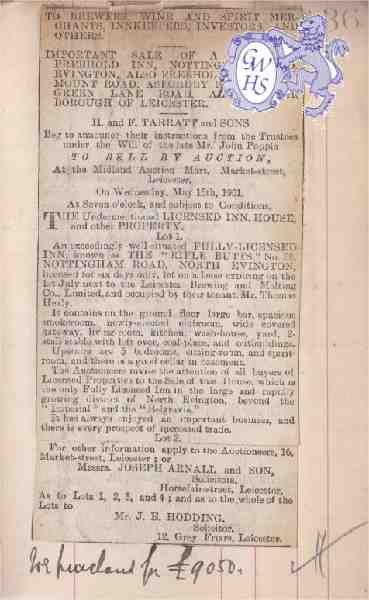 TO BREWERS, WINE AND SPIRIT MER-
CHANTS, INNKEEPERS, INVESTORS, AND
OTHERS.
IMPORTANT SALE OF A
FREEHOLD INN, NOTTING
EVINGTON, ALSO FREEHOL
MOUNT ROAD, ASFORDBY
GREEN LANE ROAD,
BOROUGH OF LEICESTER.
H. and F. TARRATT and SONS
Beg to announce their instructions from the Trustees
under the Will of the late Mr. John Poppin
TO SELL BY AUCTION,
At the Midland Auction Mart, Market-street,
Leicester,
On Wednesday, May 15th, 1901,
At Seven o'clock, and subject to Conditions,
THE Undermentioned LICENSED INN, HOUSE,
and other PROPERTY.
Lot 1.
An exceedingly well-situated FULLY-LICENSED
INN, known as THE "RIFLE BUTTS," No.
NOTTINGHAM ROAD, NORTH EVINGTON,
licensed for six days only, let on a lease expiring on the
1st July next to the Leicester Brewing and Malting
Co., Limited, and occupied by their tenant, Mr. Thomas
Healy.
It contains on the ground floor large bar, spacious
smokeroom, newly-erected clubroom, wide covered
gateway, living room, kitchen, wash-house, yard, 2-
stall stable with loft over, coal-place, and outbuildings.
Upstairs are 5 bedrooms, sitting-room, and spirit-
room, and there is a good cellar in basement.
The Auctioneers invite the attention of all buyers of
Licensed Properties to the Sale of this House, which is
the only Fully Licensed Inn in the large and rapidly
growing district of North Evington, beyond the
"Imperial" and the "Belgravia."
It has always enjoyed an important business, and
there is every prospect of increased trade.
Lot 2.
For other information apply to the Auctioneers, 16,
Market-street, Leicester; or
Messrs. JOSEPH ARNALL and SON,
Solicitors,
Horsefair-street, Leicester,
As to Lots 1, 2, 3, and 4; and as to the whole of the
Lots to
Mr. J. E. HODDING,
Solicitor,
12, Grey Friars, Leicester.
for £9050.
36
GW
HS